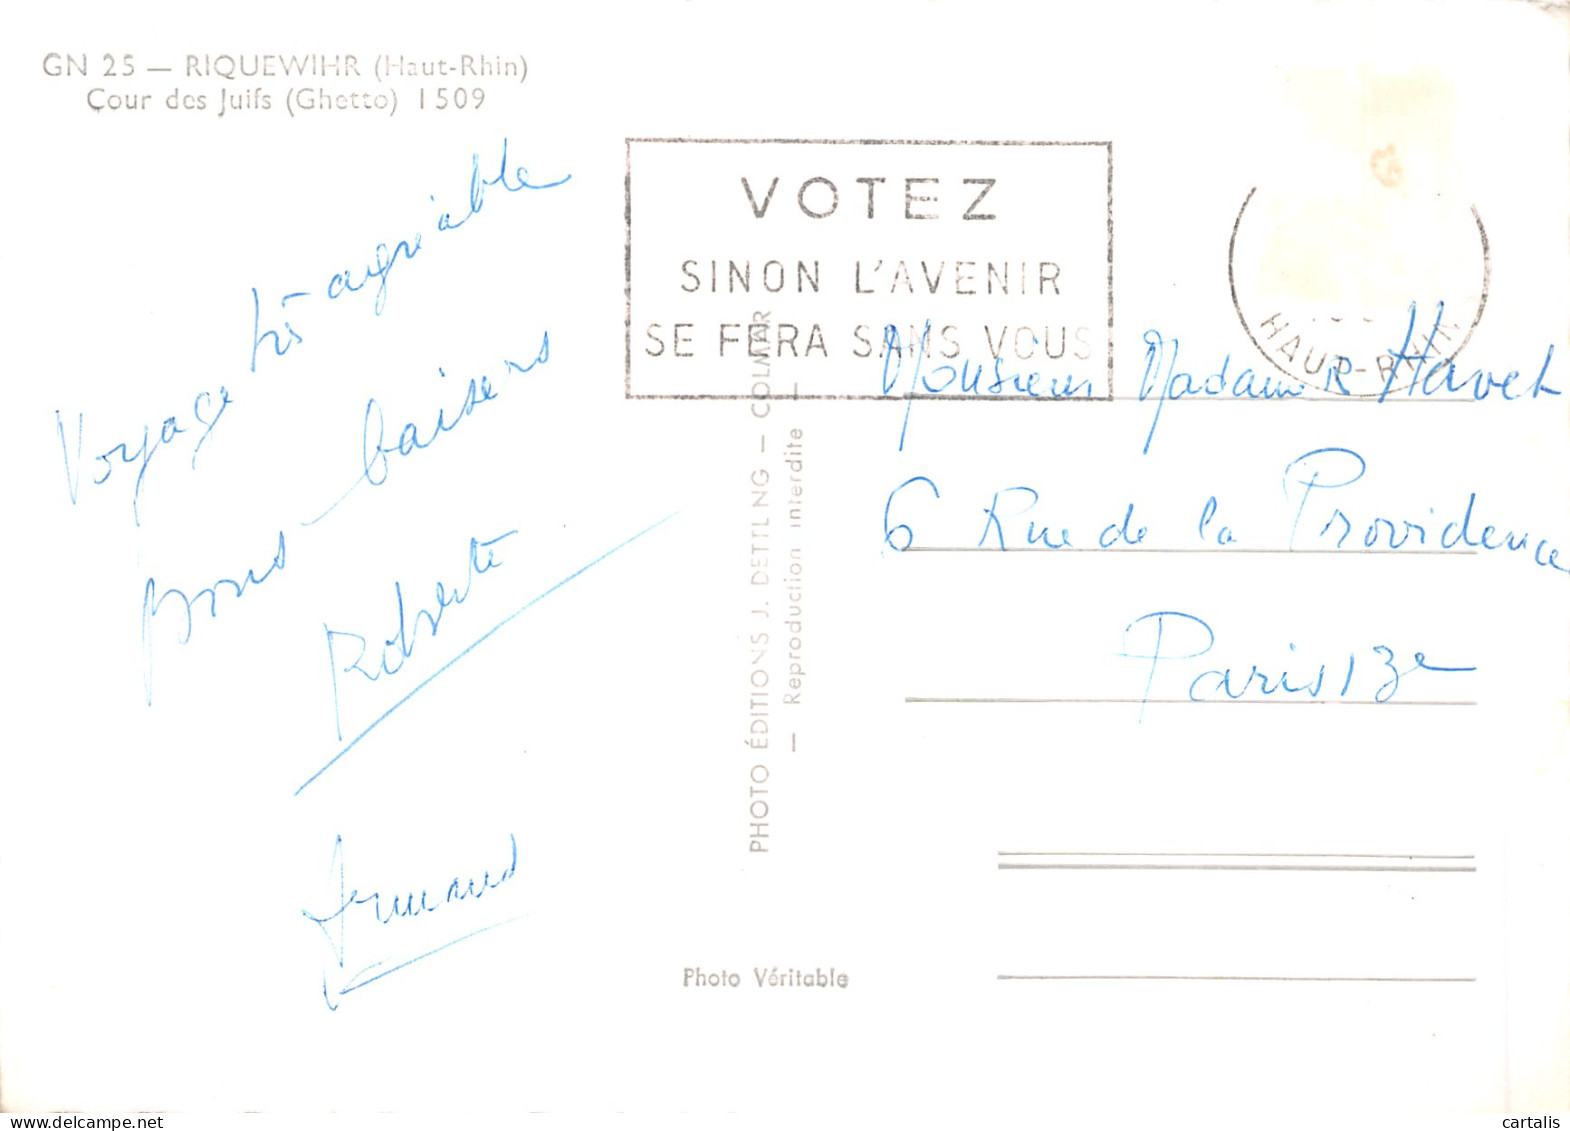 GN 25 — RIQUEWIHR (Haut-Rhin)
Cour des Juifs (Ghetto) 1509
Voyage très agréable
Bons baisers
Roberte
Armand
VOTEZ
SINON L'AVENIR
SE FERA SANS VOUS
HAUT-RHIN
PHOTO ÉDITIONS J. DETTLING — COLMAR
— Reproduction interdite —
Monsieur Madame R Havet
6 Rue de la Providence
Paris 13e
Photo Véritable
cartalis